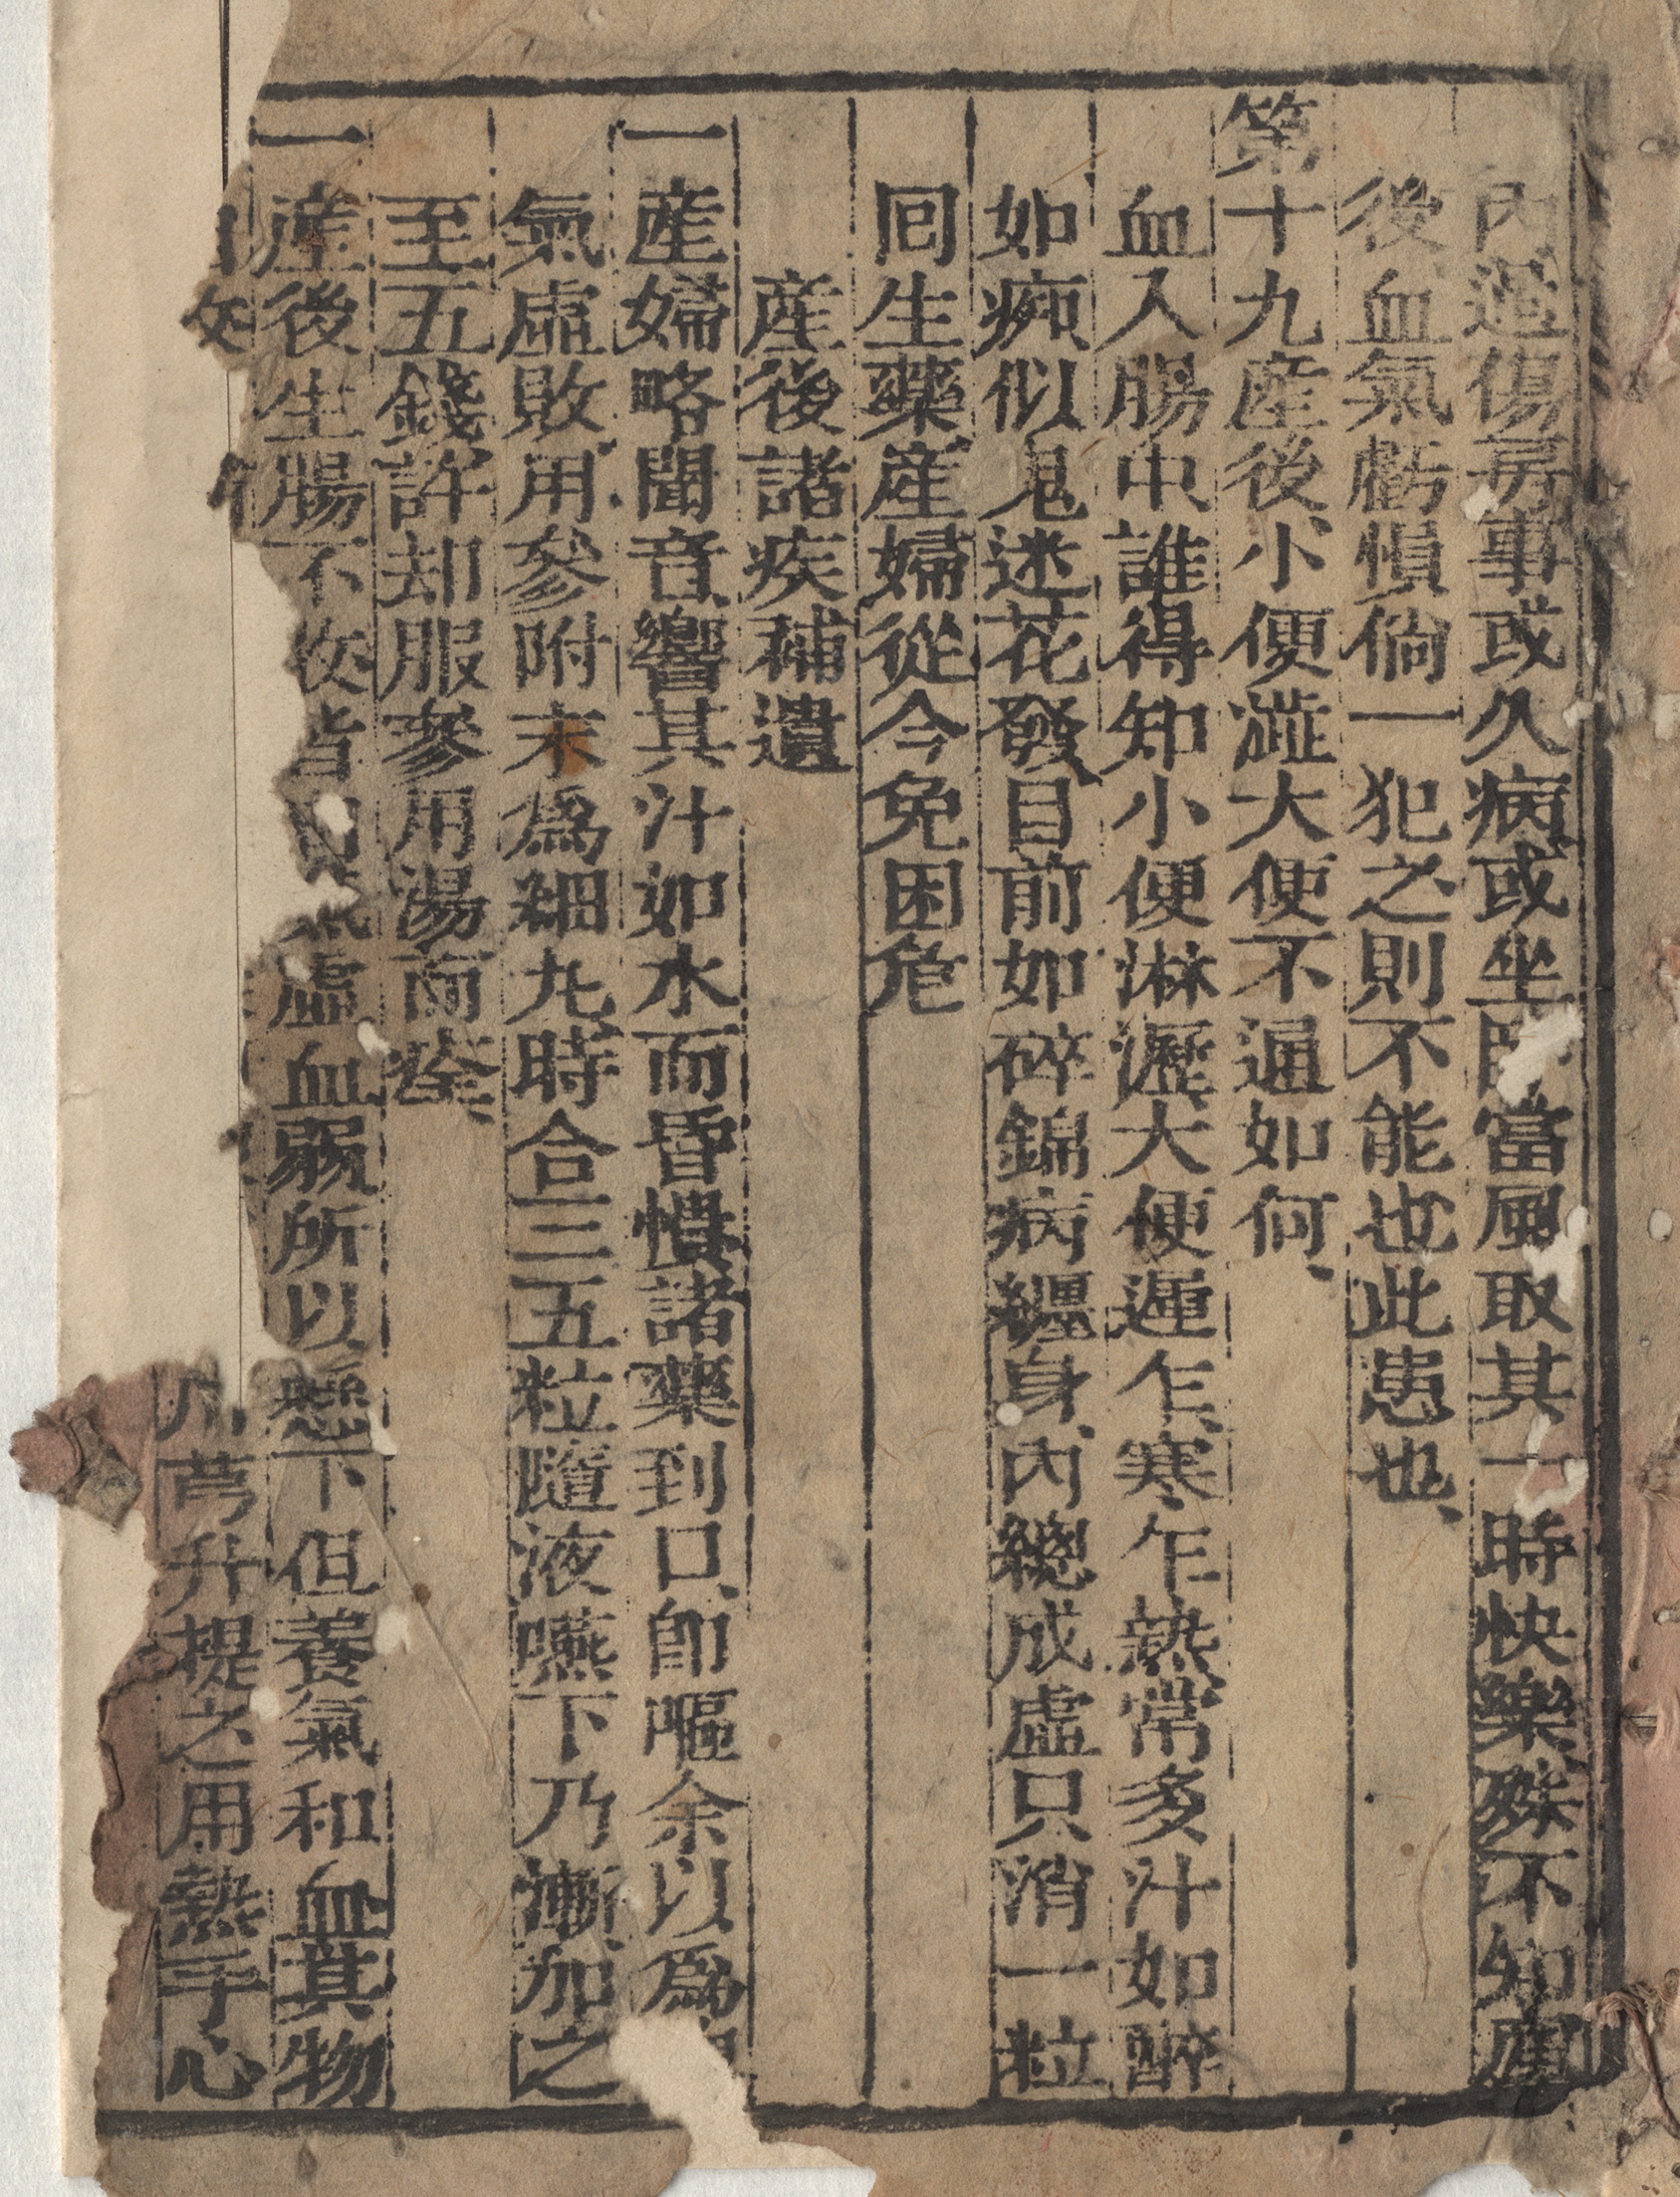 內過傷房事或久病或坐臥當風取其一時快樂殊不知產
後血氣虧惧倘一犯之則不能也此患也
第十九産後小便澁大便不通如何
血入腸中誰得知小便淋瀝大便遲乍寒乍熱常多汁如醉
如痴似鬼迷花發目前如碎錦病纏身內總成虛只消一粒
囘生藥産婦從今免困危
産後諸疾補遺
一産婦略聞音響其汁如水而昏憒諸藥到口即嘔余以爲
氣虛敗用參附末爲細丸時合三五粒隨液嚥下乃漸加之
至五錢許却服參用湯而痊
一産後生腸不收皆虛血弱所以懸下但養氣和血其物
芎升提之用熱手心